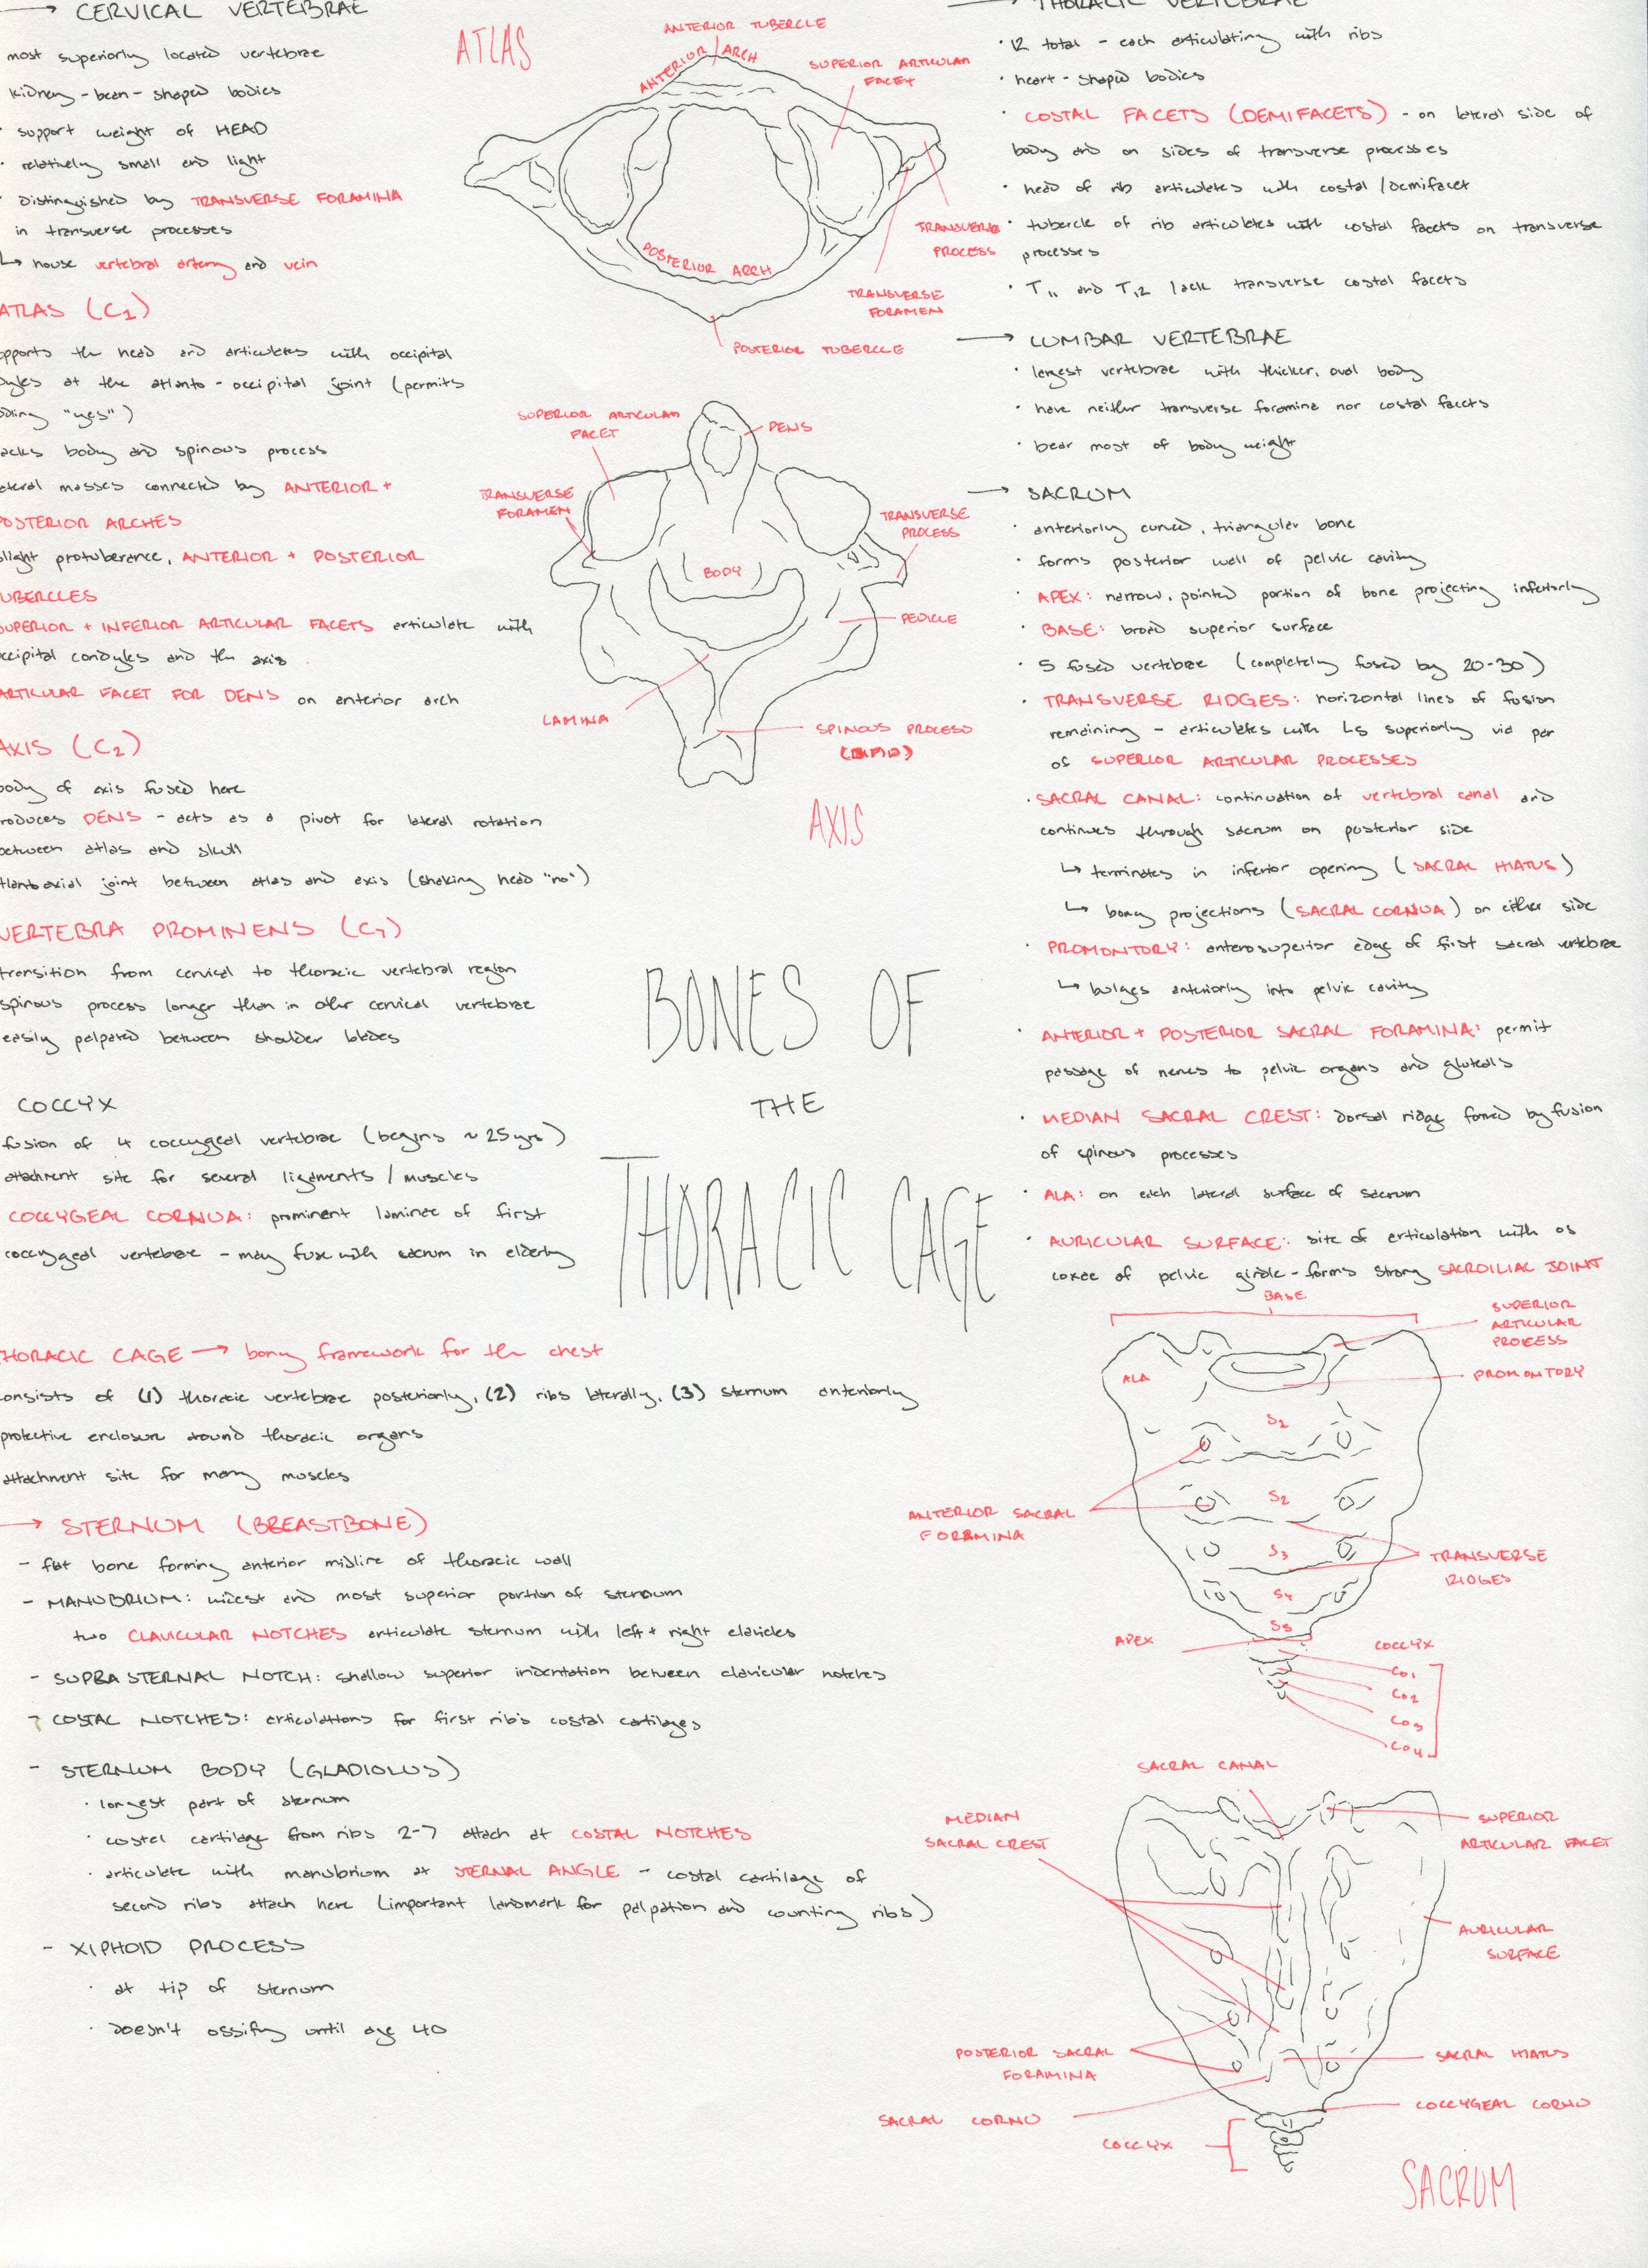 → CERVICAL VERTEBRAE
most superiorly located vertebrae
kidney-bean-shaped bodies
· support weight of HEAD
· relatively small and light
· distinguished by TRANSVERSE FORAMINA
in transverse processes
↳ house vertebral artery and vein
ATLAS (C1)
pports the head and articulates with occipital
dyles at the atlanto-occipital joint (permits
dding "yes")
acks body and spinous process
ateral masses connected by ANTERIOR +
POSTERIOR ARCHES
slight protuberance, ANTERIOR + POSTERIOR
TUBERCLES
SUPERIOR + INFERIOR ARTICULAR FACETS articulate with
occipital condyles and the axis
ARTICULAR FACET FOR DENS on anterior arch
AXIS (C2)
body of axis fused here
roduces DENS - acts as a pivot for lateral rotation
between atlas and skull
tlantoaxial joint between atlas and axis (shaking head "no")
VERTEBRA PROMINENS (C7)
transition from cervical to thoracic vertebral region
spinous process longer than in other cervical vertebrae
easily palpated between shoulder blades
COCCYX
fusion of 4 coccygeal vertebrae (begins ~25yrs)
attachment site for several ligaments / muscles
COCCYGEAL CORNUA: prominent laminae of first
coccygeal vertebrae - may fuse with sacrum in elderly
THORACIC CAGE → bony framework for the chest
consists of (1) thoracic vertebrae posteriorly, (2) ribs laterally, (3) sternum anteriorly
protective enclosure around thoracic organs
attachment site for many muscles
→ STERNUM (BREASTBONE)
- flat bone forming anterior midline of thoracic wall
- MANUBRIUM: widest and most superior portion of sternum
two CLAVICULAR NOTCHES articulate sternum with left + right clavicles
- SUPRASTERNAL NOTCH: shallow superior indentation between clavicular notches
- COSTAL NOTCHES: articulations for first rib's costal cartilages
- STERNUM BODY (GLADIOLUS)
· longest part of sternum
· costal cartilage from ribs 2-7 attach at COSTAL NOTCHES
· articulate with manubrium at STERNAL ANGLE - costal cartilage of
second ribs attach here (important landmark for palpation and counting ribs)
- XIPHOID PROCESS
· at tip of sternum
· doesn't ossify until age 40
ATLAS
ANTERIOR TUBERCLE
ANTERIOR ARCH
SUPERIOR ARTICULAR
FACET
TRANSVERSE
PROCESS
TRANSVERSE
FORAMEN
POSTERIOR ARCH
POSTERIOR TUBERCLE
SUPERIOR ARTICULAR
FACET
DENS
TRANSVERSE
FORAMEN
TRANSVERSE
PROCESS
BODY
PEDICLE
LAMINA
SPINOUS PROCESS
AXIS
BONES OF
THE
THORACIC CAGE
→ THORACIC VERTEBRAE
· 12 total - each articulating with ribs
· heart-shaped bodies
· COSTAL FACETS (DEMIFACETS) - on lateral side of
body and on sides of transverse processes
· head of rib articulates with costal/demifacet
· tubercle of rib articulates with costal facets on transverse
processes
· T11 and T12 lack transverse costal facets
→ LUMBAR VERTEBRAE
· largest vertebrae with thicker, oval body
· have neither transverse foramina nor costal facets
· bear most of body weight
→ SACRUM
· anteriorly curved, triangular bone
· forms posterior wall of pelvic cavity
· APEX: narrow, pointed portion of bone projecting inferiorly
· BASE: broad superior surface
· 5 fused vertebrae (completely fused by 20-30)
· TRANSVERSE RIDGES: horizontal lines of fusion
remaining - articulates with L5 superiorly via pair
of SUPERIOR ARTICULAR PROCESSES
· SACRAL CANAL: continuation of vertebral canal and
continues through sacrum on posterior side
↳ terminates in inferior opening (SACRAL HIATUS)
↳ bony projections (SACRAL CORNUA) on either side
· PROMONTORY: anterosuperior edge of first sacral vertebrae
↳ bulges anteriorly into pelvic cavity
· ANTERIOR + POSTERIOR SACRAL FORAMINA: permit
passage of nerves to pelvic organs and gluteals
· MEDIAN SACRAL CREST: dorsal ridge formed by fusion
of spinous processes
· ALA: on each lateral surface of sacrum
· AURICULAR SURFACE: site of articulation with os
coxae of pelvic girdle - forms strong SACROILIAC JOINT
BASE
SUPERIOR
ARTICULAR
PROCESS
ALA
PROMONTORY
S1
S2
ANTERIOR SACRAL
FORAMINA
S3
TRANSVERSE
RIDGES
S4
S5
APEX
COCCYX
Co1
Co2
Co3
Co4
SACRAL CANAL
MEDIAN
SACRAL CREST
SUPERIOR
ARTICULAR FACET
AURICULAR
SURFACE
POSTERIOR SACRAL
FORAMINA
SACRAL HIATUS
SACRAL CORNU
COCCYGEAL CORNU
COCCYX
SACRUM